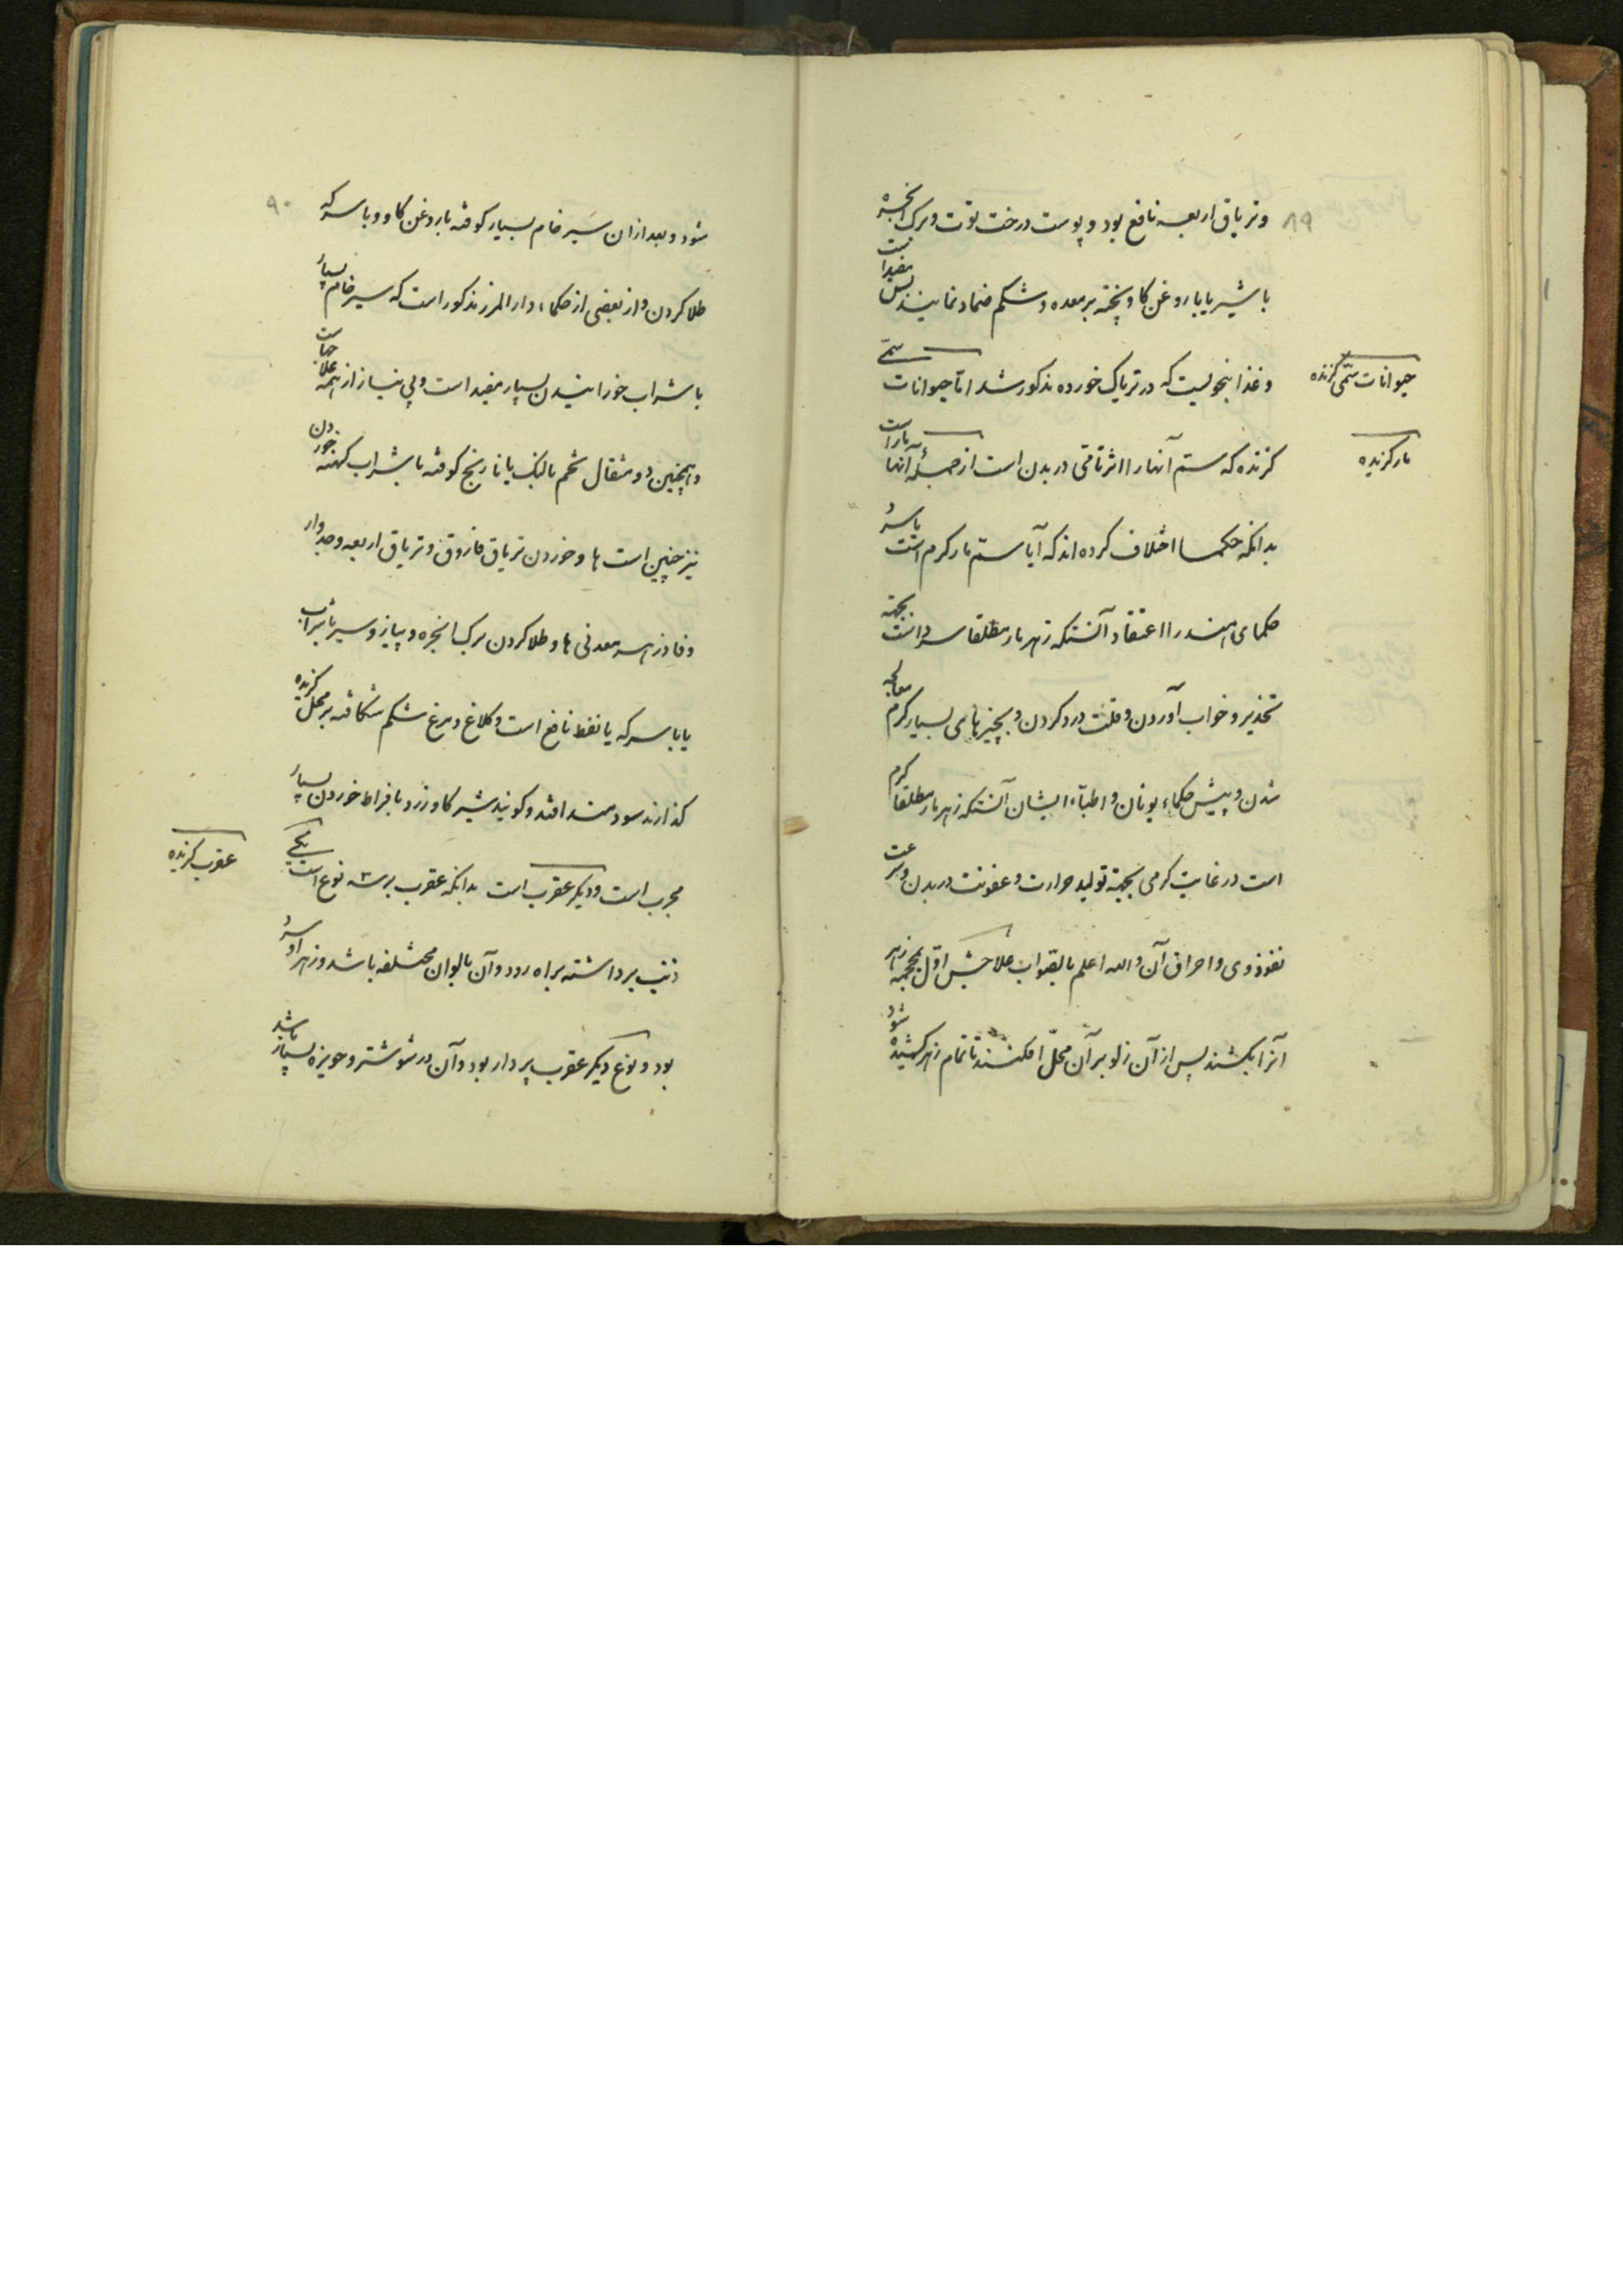 ۸۹
وتریاق اربعه نافع بود و پوست درخت توت و برک انجره
با شیر یا با روغن کاو پخته بر معده و شکم ضماد نمایند بس مفید است
حیوانات سمّی کزنده
و غذا بنحویست که در تریاک خورده مذکور شد امّا حیوانات سمّی
مار کزیده
کزنده که ستم آنها را اثر تامّی در بدن است از جمله آنها مار است
بدانکه حکما اختلاف کرده اند که آیا ستم مار کرم است یا سرد
حکمای هند را اعتقاد آنستکه زهر مار مطلقا سرد است بجهته
تخذیر و خواب آوردن و قلت درد کردن و بچیزهای بسیار کرم معالجه
شدن و پیش حکماء یونان و اطبّاء ایشان آنستکه زهر مار مطلقا کرم
است در غایت کرمی بجهته تولید حرارت و عفونت در بدن و سرعت
نفوذ وی و احراق آن والله اعلم بالصّواب علاجش اوّل بمحجمه زهر
آنرا بکشند پس از آن زلو بر آن محلّ افکنند تا تمام زهر کشیده شود
۹۰
شود و بعد از ان سیر خام بسیار کوفته با روغن کاو و با سرکه
طلا کردن و از بعضی از حکماء دار المرز مذکور است که سیر خام بسیار
با شراب خورانیدن بسیار مفید است و بی نیاز از همه علاجهاست
و همچنین دو مثقال تخم بالنک یا نارنج کوفته با شراب کهنه خوردن
نیز چنین است ها و خوردن تریاق فاروق و تریاق اربعه و جدوار
و فادزهر معدنی ها و طلا کردن برک انجره و پیاز و سیر با شراب
یا با سرکه یا نفط نافع است و کلاغ و مرغ شکم شکافته بر محل کزیده
کذارند سودمند افتد و کویند شیر کاو زرد بافراط خوردن بسیار
عقرب کزیده
مجرب است و دیکر عقرب است بدانکه عقرب بر سه نوع است یکی
ذنب برداشته براه رود و آن بالوان مختلفه باشد و زهر او سرد
بود و نوع دیکر عقرب پردار بود و آن در شوشتر و حویزه بسیار باشد